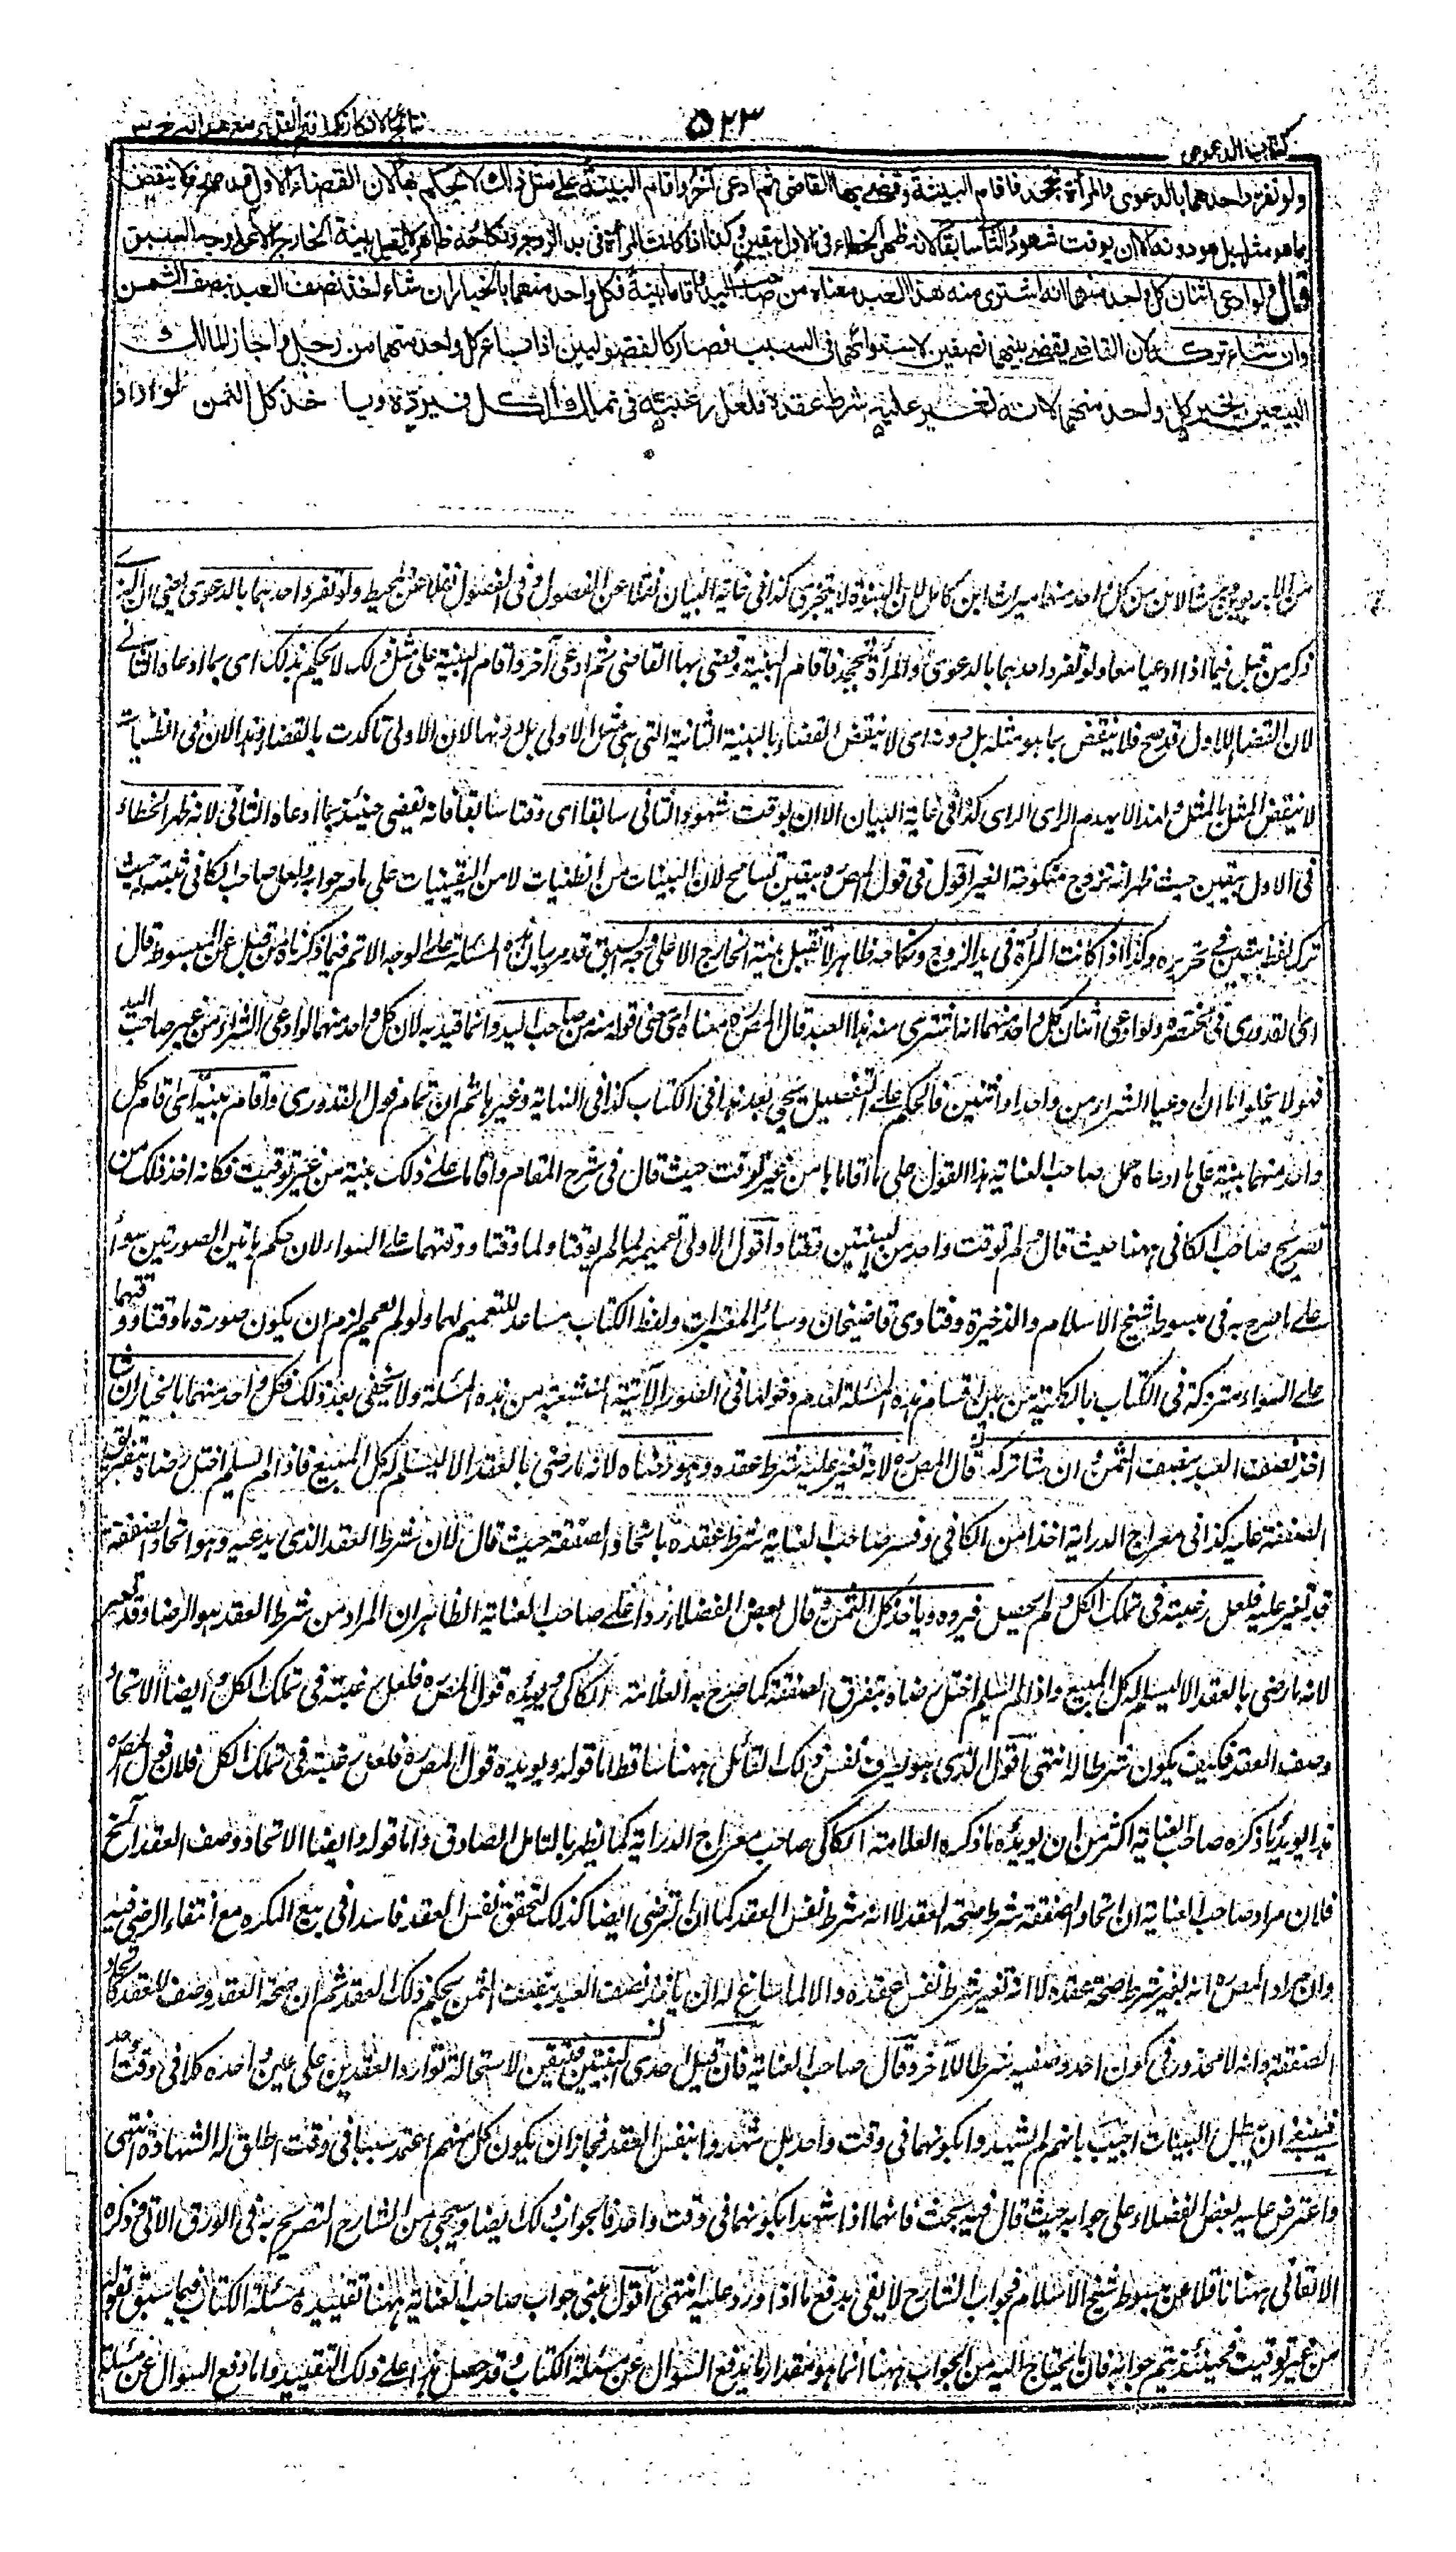 كتاب الدعوى
٥٢٣
نتائج الافكار تكملة فتح القدير مع هداية
ولو تفرد احدهما بالدعوى والمرأة تجحد فاقام البينة وقضى بها القاضى ثم ادعى آخر واقام البينة على مثل ذلك لا يحكم بها لان القضاء الاول قد صح فلا ينقض
بما هو مثله بل هو دونه الا ان يوقت شهود الثانى سابقا لانه ظهر الخطاء فى الاول بيقين وكذا اذا كانت المرأة فى يد الزوج ونكاحه ظاهر لا تقبل بينة الخارج الا على وجه السبق
قال ولو ادعى اثنان كل واحد منهما انه اشترى منه هذا العبد معناه من صاحب اليد واقاما بينة فكل واحد منهما بالخيار ان شاء اخذ نصف العبد بنصف الثمن
وان شاء ترك لان القاضى يقضى بينهما نصفين لاستوائهما فى السبب فصار كالفضوليين اذا باع كل واحد منهما من رجل واجاز المالك
البيعين يخير كل واحد منهما لانه تغير عليه شرط عقده فلعل رغبته فى تملك الكل فيرده ويا خذ كل الثمن لو اراد
من الابن يرث الابن من كل احد منهما ميراث ابن كامل لان البنوة لا تتجزى كذا فى غاية البيان نقلا عن الفصول وفى الفصول نقلا عن المحيط ولو تفرد احدهما بالدعوى يعنى ان الذى
ذكر من قبل فيما اذا ادعيا معا ولو تفرد احدهما بالدعوى والمرأة تجحد فاقام البينة وقضى بها القاضى ثم ادعى آخر واقام البينة على مثل ذلك لا يحكم بذلك اى بما ادعاه الثانى
لان القضاء الاول قد صح فلا ينقض بما هو مثله بل دونه اى لا ينقض القضاء بالبينة الثانية التى هى مثل الاولى بل دونها لان الاولى تأكدت بالقضاء وهذا لان فى الظنيات
لا ينقض المثل بالمثل ولهذا لا يهدم الراى الراى كذا فى غاية البيان الا ان يوقت شهود الثانى سابقا اى وقتا سابقا فانه يقضى حينئذ بما ادعاه الثانى لانه ظهر الخطاء
فى الاول بيقين حيث ظهر انه تزوج منكوحة الغير اقول فى قول المص ره بيقين تسامح لان البينات من الظنيات لا من اليقينيات على ما صرحوا به ولعل صاحب الكافى تنبه له حيث
ترك لفظ بيقين فى تحريره وكذا اذا كانت المرأة فى يد الزوج ونكاحه ظاهر لا تقبل بينة الخارج الا على وجه السبق قد مر بيان هذه المسئلة على الوجه الاتم فيما ذكرناه من قبل عن المبسوط قال
اى القدورى فى مختصره ولو ادعى اثنان كل واحد منهما انه اشترى منه هذا العبد قال المص ره معناه اى معنى قوله منه من صاحب اليد وانما قيد به لان كل واحد منهما لو ادعى الشراء من غير صاحب اليد
فهو لا يخلو اما ان ادعيا الشراء من واحد او اثنين فالحكم على التفصيل يجئ بعد هذا فى الكتاب كذا فى النهاية وغيرها ثم ان تمام قول القدورى واقاما بينة اى اقام كل
واحد منهما بينة على ما ادعاه حمل صاحب العناية هذا القول على ما اقاماها من غير توقيت حيث قال فى شرح المقام واقاما على ذلك بينة من غير توقيت فكانه اخذ ذلك من
تصريح صاحب الكافى ههنا حيث قال ولم توقت واحد من البينتين وقتا واقول الاولى تعميمه لما لم يوقتا ولما وقتا ووقتهما على السواء لان حكم هاتين الصورتين سواء
على ما صرح به فى مبسوط شيخ الاسلام والذخيرة وفتاوى قاضيخان وسائر المعتبرات ولفظ الكتاب مساعد للتعميم لهما ولو لم يعمم لزم ان يكون صورة ما وقتا ووقتهما
على السواء متروكة فى الكتاب بالكلية من بين اقسام هذه المسئلة لعدم دخولها فى الصور الآتية المنشعبة من هذه المسئلة ولا يخفى بعد ذلك فكل واحد منهما بالخيار ان شاء
اخذ نصف العبد بنصف الثمن وان شاء تركه قال المص ره لانه تغير عليه شرط عقده وهو رضاه لانه ما رضى بالعقد الا ليسلم له كل المبيع فاذا لم يسلم اختل رضاه بتفرق
الصفقة عليه كذا فى معراج الدراية اخذا من الكافى وفسر صاحب العناية شرط عقده باتحاد الصفقة حيث قال لان شرط العقد الذى يدعيه وهو اتحاد الصفقة
قد تغير عليه فلعل رغبته فى تملك الكل ولم يحصل فيرده وياخذ كل الثمن وقال بعض الفضلاء ردا على صاحب العناية الظاهر ان المراد من شرط العقد هو الرضا وقد تغير
لانه ما رضى بالعقد الا ليسلم له كل المبيع واذا لم يسلم اختل رضاه بتفرق الصفقة كما صرح به العلامة الكاكى ويؤيده قول المص ره فلعل رغبته فى تملك الكل وايضا الاتحاد
وصف العقد فكيف يكون شرطا له انتهى اقول الذى هو بطرف نفس ذلك القائل ههنا ساقط اما قوله ويؤيده قول المص ره فلعل رغبته فى تملك الكل فلان قول المص ره
هذا يؤيد ما ذكره صاحب العناية اكثر من ان يؤيده ما ذكره العلامة الكاكى صاحب معراج الدراية كما يظهر بالتامل الصادق واما قوله وايضا الاتحاد وصف العقد الخ
فلان مراد صاحب العناية ان اتحاد الصفقة شرط صحة العقد لا انه شرط نفس العقد كما ان الرضى ايضا كذلك لتحقق نفس العقد فاسدا فى بيع المكره مع انتفاء الرضى فيه
وان مراد المص ره انه تغير شرط صحة عقده لا انه تغير شرط نفس عقده والا لما ساغ له ان ياخذ نصف العبد بنصف الثمن بحكم ذلك العقد ثم ان صحة العقد وصف للعقد كاتحاد
الصفقة وانه لا محذور فى كون احد وصفيه شرطا للآخر وقال صاحب العناية فان قيل احدى البينتين كاذبة بيقين لاستحالة توارد العقدين على عين واحدة كلا فى وقت واحد
فينبغى ان تبطل البينات اجيب بانهم لم يشهدوا بكونهما فى وقت واحد بل شهدوا بنفس العقد فجاز ان يكون كل منهم اعتمد سببا فى وقت اطلق له الشهادة انتهى
واعترض عليه بعض الفضلاء على جوابه حيث قال فيه بحث فانهما اذا شهدا بكونهما فى وقت واحد فالجواب ذلك ايضا وسيجئ من الشارح التصريح به فى الورق الآتى وذكره
الاتقانى ههنا ناقلا عن مبسوط شيخ الاسلام فجواب الشارح لا يفى بدفع ما اذا اورد عليه انتهى اقول مبنى جواب صاحب العناية ههنا تقييده مسئلة الكتاب فيما سبق بقوله
من غير توقيت فحينئذ يتم جوابه فان ما يحتاج اليه من الجواب ههنا انما هو مقدار ما يدفع السوال عن مسئلة الكتاب وقد حصل هذا على ذلك التقييد واما دفع السوال عن مسئلة